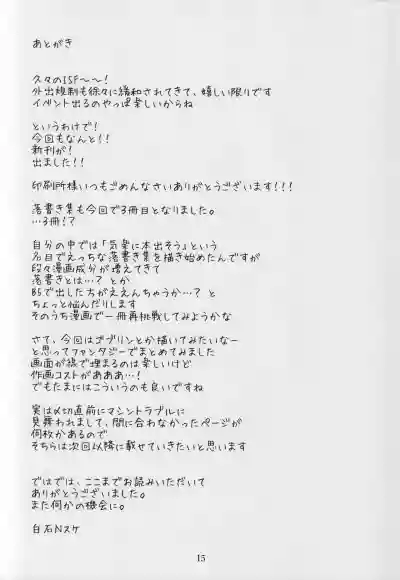 あとがき
久々のISF～～！
外出規制も徐々に緩和されてきて、嬉しい限りです
イベント出るのやっぱ楽しいからね
というわけで！
今回もなんと！！
新刊が！
出ました！！
印刷所様いつもごめんなさいありがとうございます！！！
落書き集も今回で3冊目となりました。
…3冊！？
自分の中では「気楽に本出そう」という
名目でえっちな落書き集を描き始めたんですが
段々漫画成分が増えてきて
落書きとは…？とか
B5で出した方がええんちゃうか…？と
ちょっと悩んだりします
そのうち漫画で一冊再挑戦してみようかな
さて、今回はゴブリンとか描いてみたいなー
と思ってファンタジーでまとめてみました
画面が線で埋まるのは楽しいけど
作画コストがあああ…！
でもたまにはこういうのも良いですね
実は〆切直前にマシントラブルに
見舞われまして、間に合わなかったページが
何枚かあるので
そちらは次回以降に載せていきたいと思います
ではでは、ここまでお読みいただいて
ありがとうございました。
また何かの機会に。
白石Nスケ
15